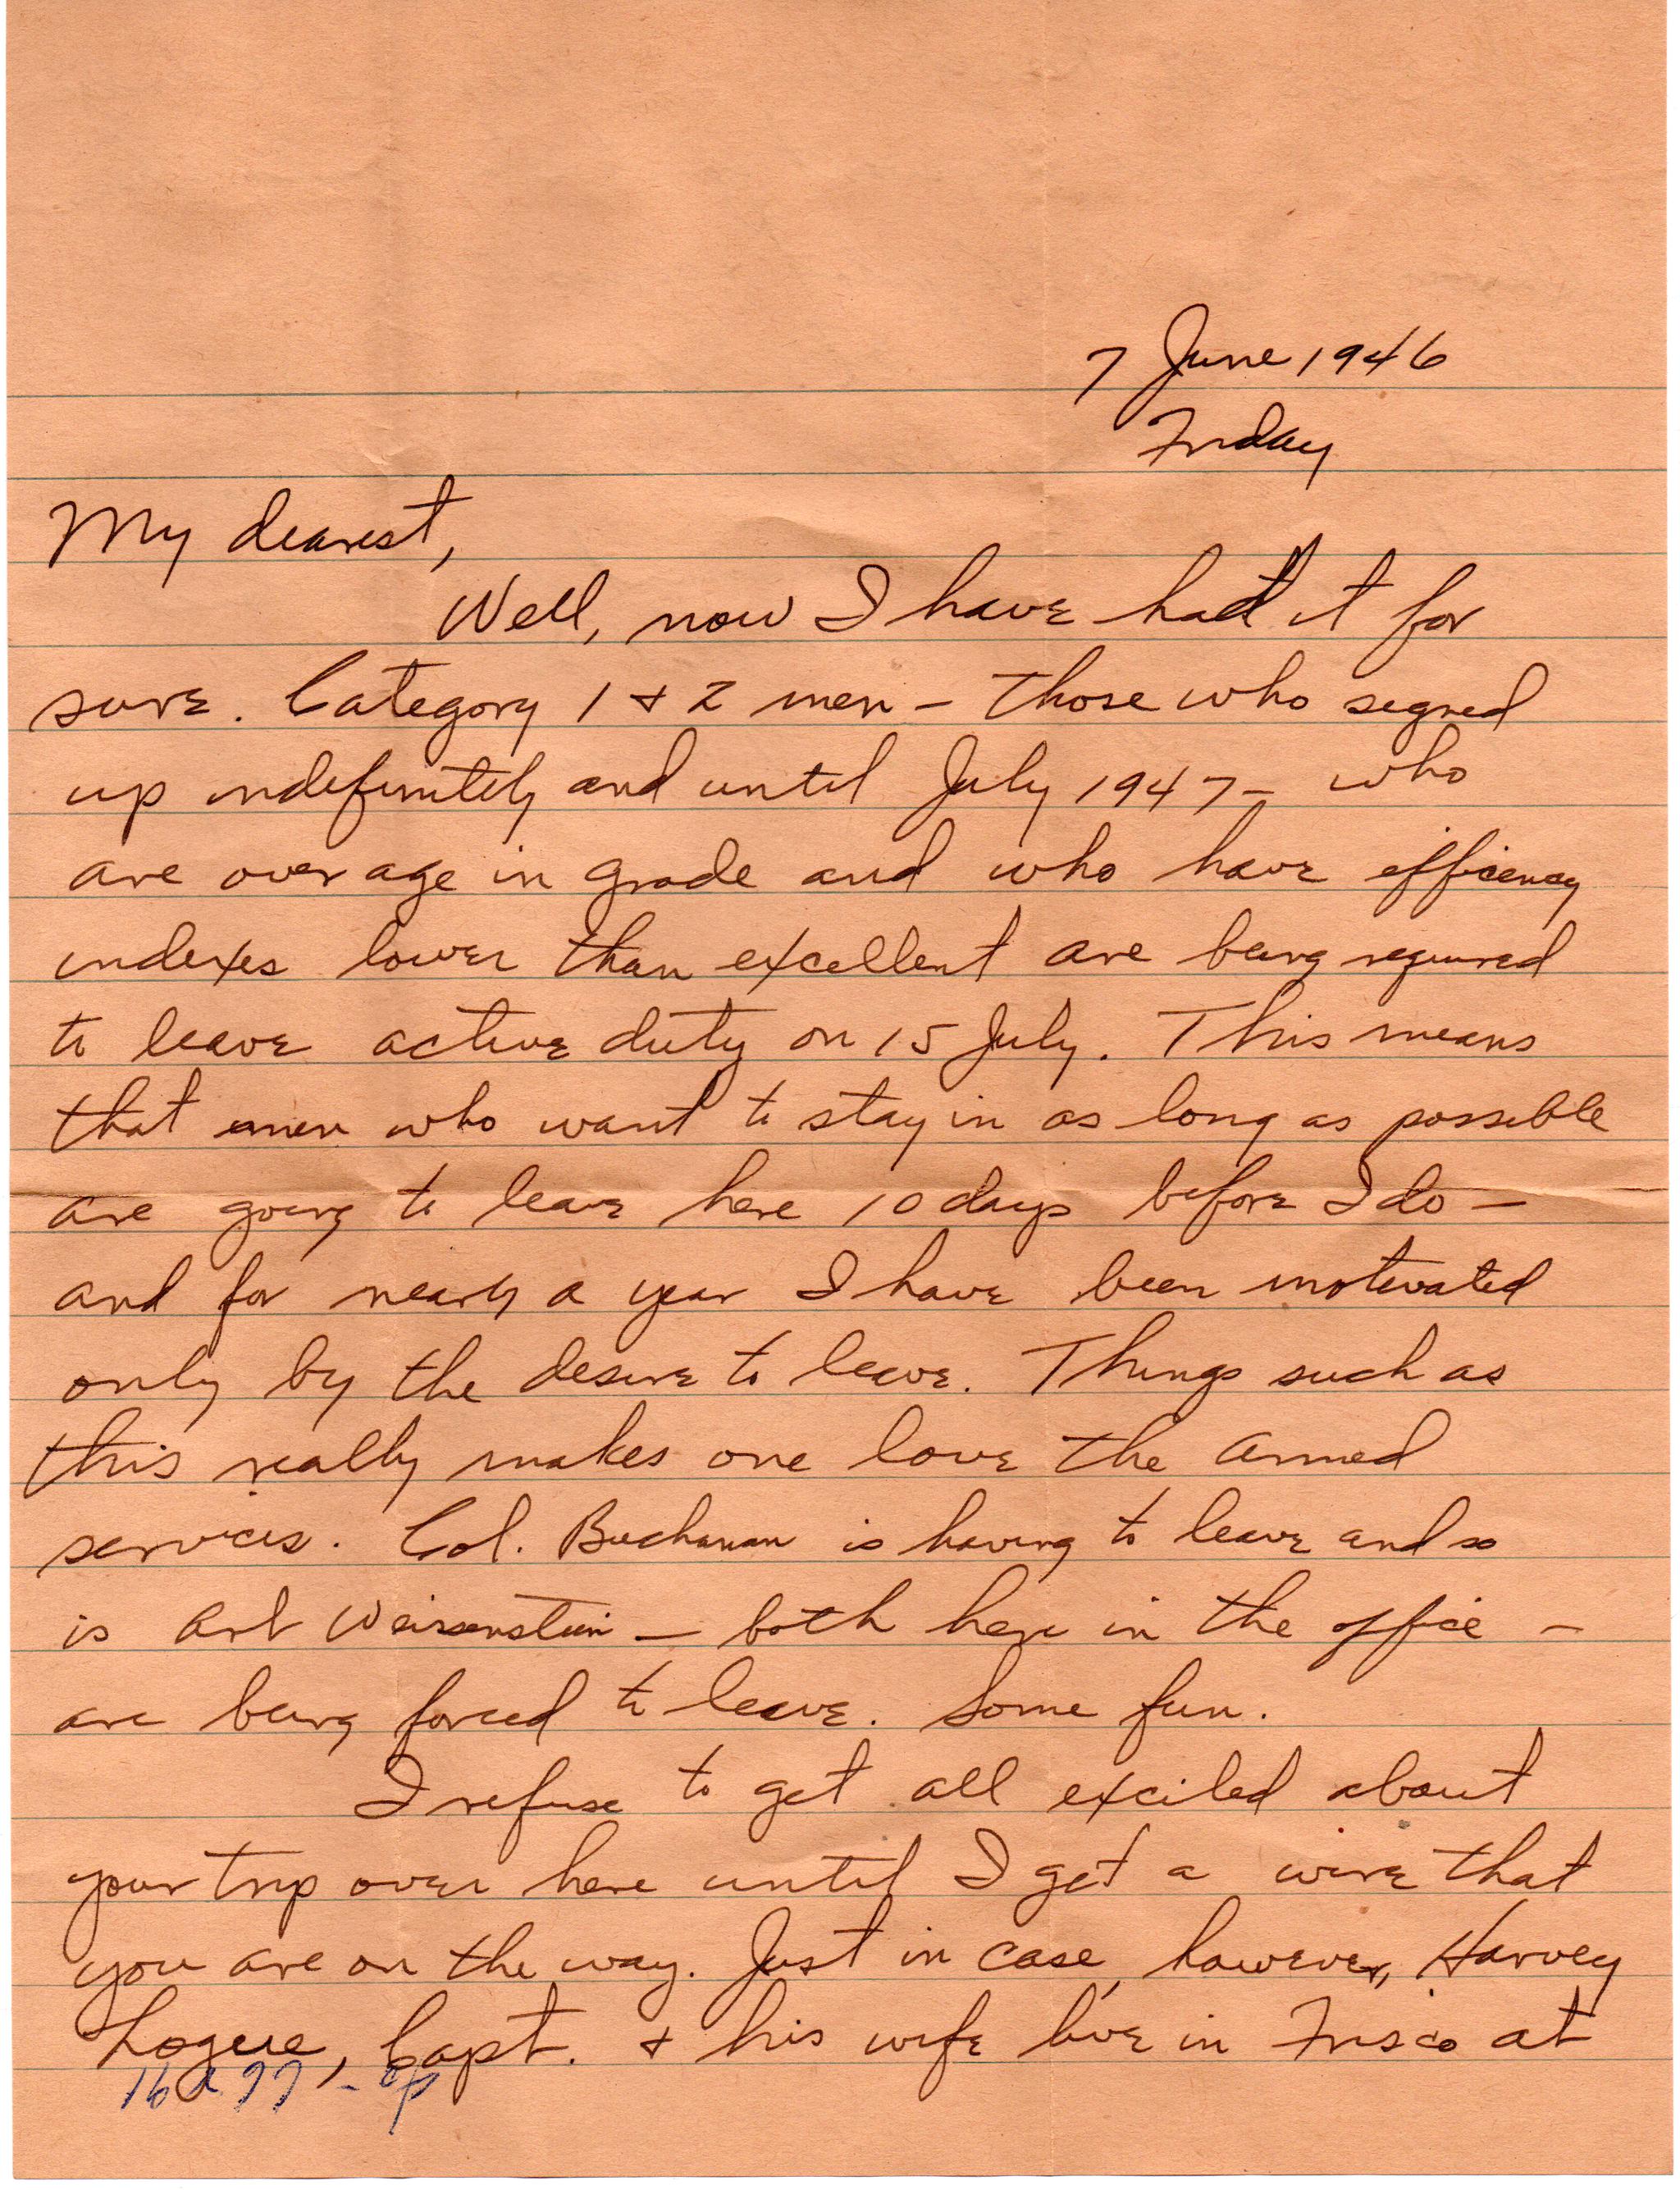 7 June 1946
Friday
My dearest,
Well, now I have had it for
sure. Category 1 + 2 men – those who signed
up indefinitely and until July 1947 – who
are over age in grade and who have efficiency
indexes lower than excellent are being required
to leave active duty on 15 July. This means
that men who want to stay in as long as possible
are going to leave here 10 days before I do –
and for nearly a year I have been motivated
only by the desire to leave. Things such as
this really makes one love the armed
services. Col. Buchanan is having to leave and so
is Art Weissenstein – both here in the office –
are being forced to leave. Some fun.
I refuse to get all excited about
your trip over here until I get a wire that
you are on the way. Just in case, however, Harvey
Logue, Capt. + his wife live in Frisco at